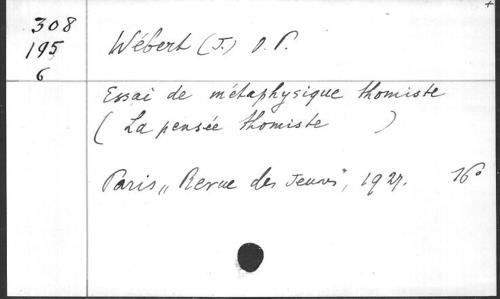 308
195
6
Wébert (J.) O.P.
Essai de métaphysique thomiste
(La pensée thomiste )
Paris, "Revue des Jeunes", 1927. 16°